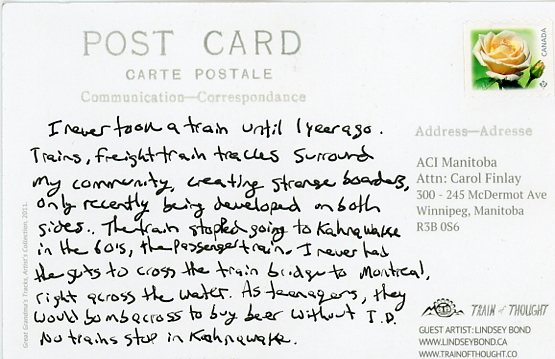 POST CARD
CARTE POSTALE
Communication—Correspondance
CANADA
P
I never took a train until 1 year ago.
Trains, freight train tracks surround
my community, creating strange boarders,
only recently being developed on both
sides.. The train stopped going to Kahnawake
in the 60's, the passenger train. I never had
the guts to cross the train bridge to Montreal,
right across the water. As teenagers, they
would bomb across to buy beer without I.D.
No trains stop in Kahnawake.
Address—Adresse
ACI Manitoba
Attn: Carol Finlay
300 - 245 McDermot Ave
Winnipeg, Manitoba
R3B 0S6
TRAIN of THOUGHT
GUEST ARTIST: LINDSEY BOND
WWW.LINDSEYBOND.CA
WWW.TRAINOFTHOUGHT.CO
Great Grandma's Tracks, Artist's Collection, 2011.